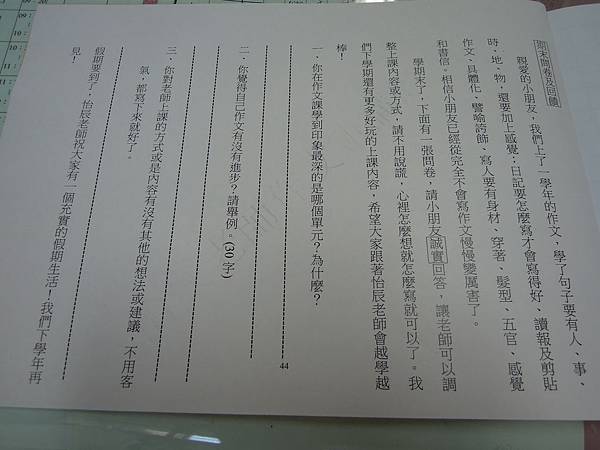 期末問卷及回饋
親愛的小朋友，我們上了一學年的作文，學了句子要有人、事、
時、地、物，還要加上感覺；日記要怎麼寫才會寫得好、讀報及剪貼
作文、具體化、譬喻誇飾、寫人要有身材、穿著、髮型、五官、感覺
和書信。相信小朋友已經從完全不會寫作文慢慢變厲害了。
學期末了，下面有一張問卷，請小朋友誠實回答，讓老師可以調
整上課內容或方式，請不用說謊，心裡怎麼想就怎麼寫就可以了。我
們下學期還有更多好玩的上課內容，希望大家跟著怡辰老師會越學越
棒！
一、你在作文課學到印象最深的是哪個單元？為什麼？
二、你覺得自己作文有沒有進步？請舉例。(30字)
三、你對老師上課的方式或是內容有沒有其他的想法或建議，不用客
氣，都寫下來就好了。
假期要到了，怡辰老師祝大家有一個充實的假期生活！我們下學年再
見！
44